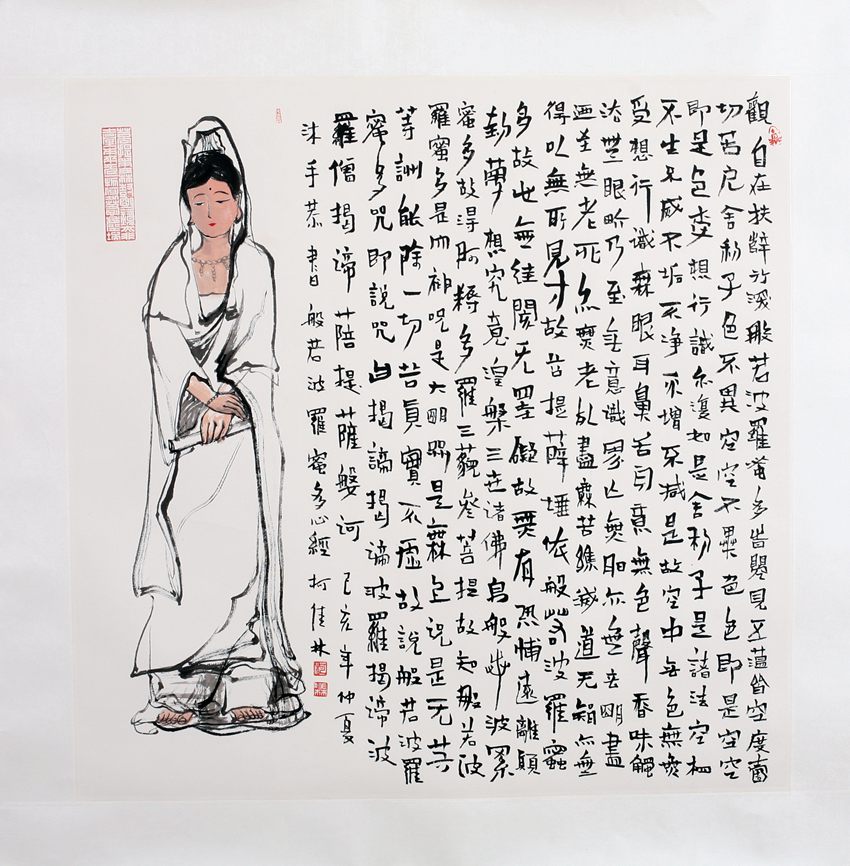 觀自在 行深般若波羅 多 見五蘊皆空度
切 舍利子色不異空空不異色色即是空空
即是色受想行識亦復如是舍利子是諸法空相
不生不滅不垢不淨不增不減是故空中無色無
受想行識無眼耳鼻舌身意無色聲香味觸
法無眼界乃至無意識界 無 亦無 明盡
乃至無老死亦無老死盡無苦集滅道无智亦無
得以無所 故菩提薩埵依般若波羅蜜
多故心無罣閡无罣礙故無有恐怖遠離顛
倒夢想究竟涅槃三世諸佛 般若波羅
蜜多故得阿耨多羅三藐 菩提故知般若波
羅蜜多是 神咒是大明咒是無上 是无等
等 能除一切苦真實不虛故說般若波羅
蜜多咒即說咒曰揭諦揭諦波羅揭諦波
羅僧揭諦菩提薩婆訶 己亥年仲夏
沐手恭書 般若波羅蜜多心經 柯佳林